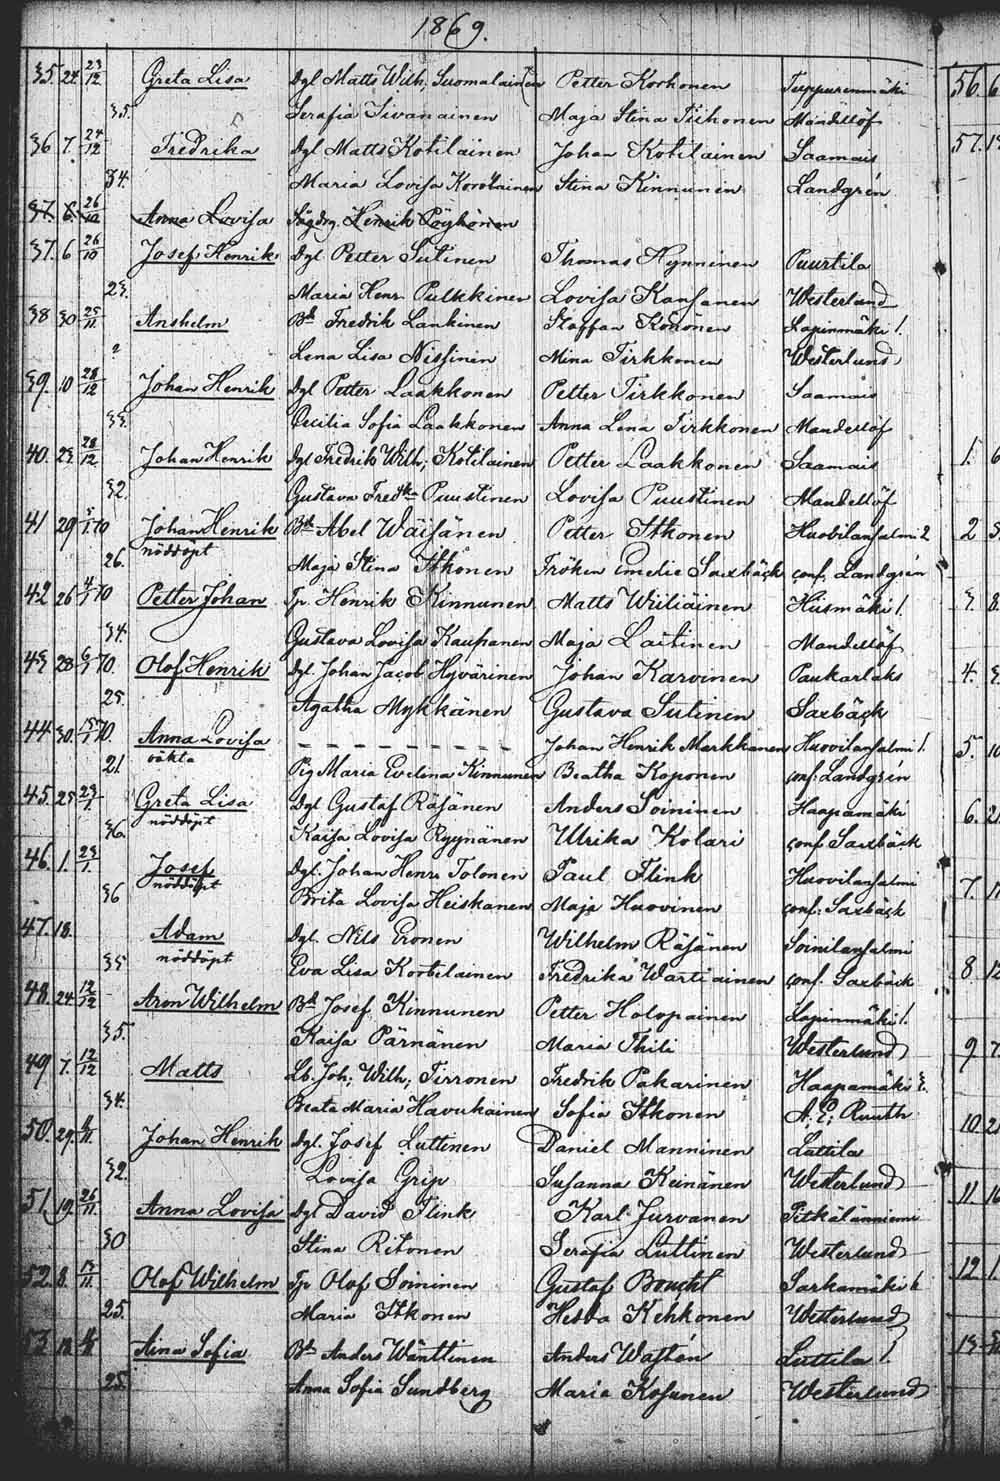 1869.
35. 24. 23/12 Greta Lisa Dgl Matts Wilh; Suomalainen Petter Korhonen Tuppurinmäki
35. Serafia Sivanainen Maja Stina Tiihonen Mandellöf
36 7. 24/12 Fredrika Dgl Matts Kotilainen Johan Kotilainen Saamais
34. Maria Lovisa Korolainen Stina Kinnunen Landgrén
37. 6. 26/10 Anna Lovisa Henrik Pöyhönen
37. 6 26/10 Josef Henrik Dgl Petter Sutinen Thomas Hynninen Puurtila
23. Maria Henr. Pulkkinen Lovisa Kansanen Westerlund
38 30 25/11 Anshelm Bd Fredrik Lankinen Staffan Kononen Lapinmäki 1.
Lena Lisa Nissinen Mina Tirkkonen Westerlund
39. 10 28/12 Johan Henrik Dgl Petter Laakkonen Petter Tirkkonen Saamais
33. Cecilia Sofia Laakkonen Anna Lena Tirkkonen Mandellöf
40. 23 28/12 Johan Henrik Dgl Fredrik Wilh; Kotilainen Petter Laakkonen Saamais
32. Gustava Fredka Puustinen Lovisa Puustinen Mandellöf
41 29 5/1 70 Johan Henrik Bd Abel Wäisänen Petter Itkonen Huovilansalmi 2
nöddöpt
26. Maja Stina Itkonen Fröken Emelie Saxbäck conf. Landgrén
42 26 4/1 70 Petter Johan Tp. Henrik Kinnunen Matts Wiiliäinen Hiismäki 1.
34. Gustava Lovisa Kauhanen Maja Laitinen Mandellöf
43 28 6/1 70. Olof Henrik Dgl. Johan Jacob Hyvärinen Johan Karvinen Paukarlaks
25. Agatha Mykkänen Gustava Sutinen Saxbäck
44 30. 15/1 70. Anna Lovisa - - - - - - - - - Johan Henrik Markkanen Huovilansalmi 1.
oäkta
21. Pig Maria Evelina Kinnunen Beatha Koponen conf. Landgrén
45. 25 23/1. Greta Lisa Dgl Gustaf Räsänen Anders Soininen Haapamäki
nöddöpt
36. Kaisa Lovisa Ryynänen Ulrika Kolari conf Saxbäck
46. 1. 23/1. Josef Dgl. Johan Henr. Tolonen Paul Flink Huovilansalmi
nöddöpt
36 Brita Lovisa Heiskanen Maja Huovinen conf: Saxbäck
47. 18. Adam Dgl. Nils Eronen Wilhelm Räsänen Soinilansalmi
nöddöpt
35 Eva Lisa Kortelainen Fredrika Wartiainen conf. Saxbäck
48. 24. 12/12 Aron Wilhelm Bd Josef Kinnunen Petter Holopainen Lapinmäki 1.
35. Kaisa Pärnänen Maria Thili Westerlund
49 7. 12/12 Matts Lb. Joh; Wilh; Tirronen Fredrik Pakarinen Haapamäki 3.
34. Beata Maria Havukainen Sofia Itkonen A. E; Ruuth
50. 29. Johan Henrik Dgl. Josef Luttinen Daniel Manninen Luttila
32. Lovisa Grip Susanna Keinänen Westerlund
51. 19. 26/11. Anna Lovisa Dgl David Flink Karl Jurvanen Pitkälänniemi
30 Stina Ritonen Serafia Luttinen Westerlund
52. 8. Olof Wilhelm Tp Olof Soininen Gustaf Boucht Sarkamäki 6
25. Maria Itkonen Hedda Kehkonen Westerlund
53 18. Aina Sofia Bd Anders Wänttinen Anders Wastén Luttila 1.
25. Anna Sofia Sundberg Maria Kosunen Westerlund
56. 6
57. 1
1. 6
2 5
3 8.
4. 3
5. 10
6. 2
7. 1
8 12
9 7.
10. 2
11 16
12. 1.
13